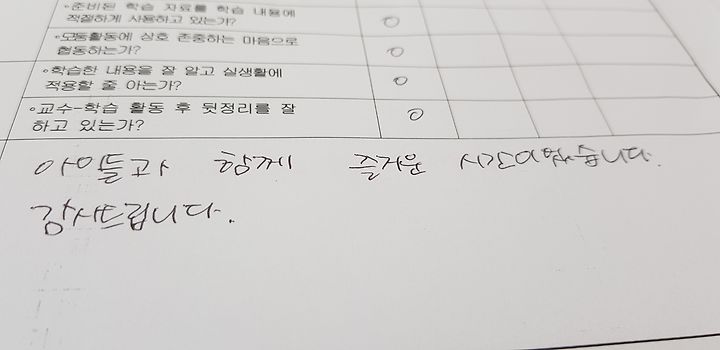 ◦준비된 학습 자료를 학습 내용에
적절하게 사용하고 있는가?
◦모둠활동에 상호 존중하는 마음으로
협동하는가?
◦학습한 내용을 잘 알고 실생활에
적용할 줄 아는가?
◦교수-학습 활동 후 뒷정리를 잘
하고 있는가?
아이들과 함께 즐거운 시간이었습니다.
감사드립니다.